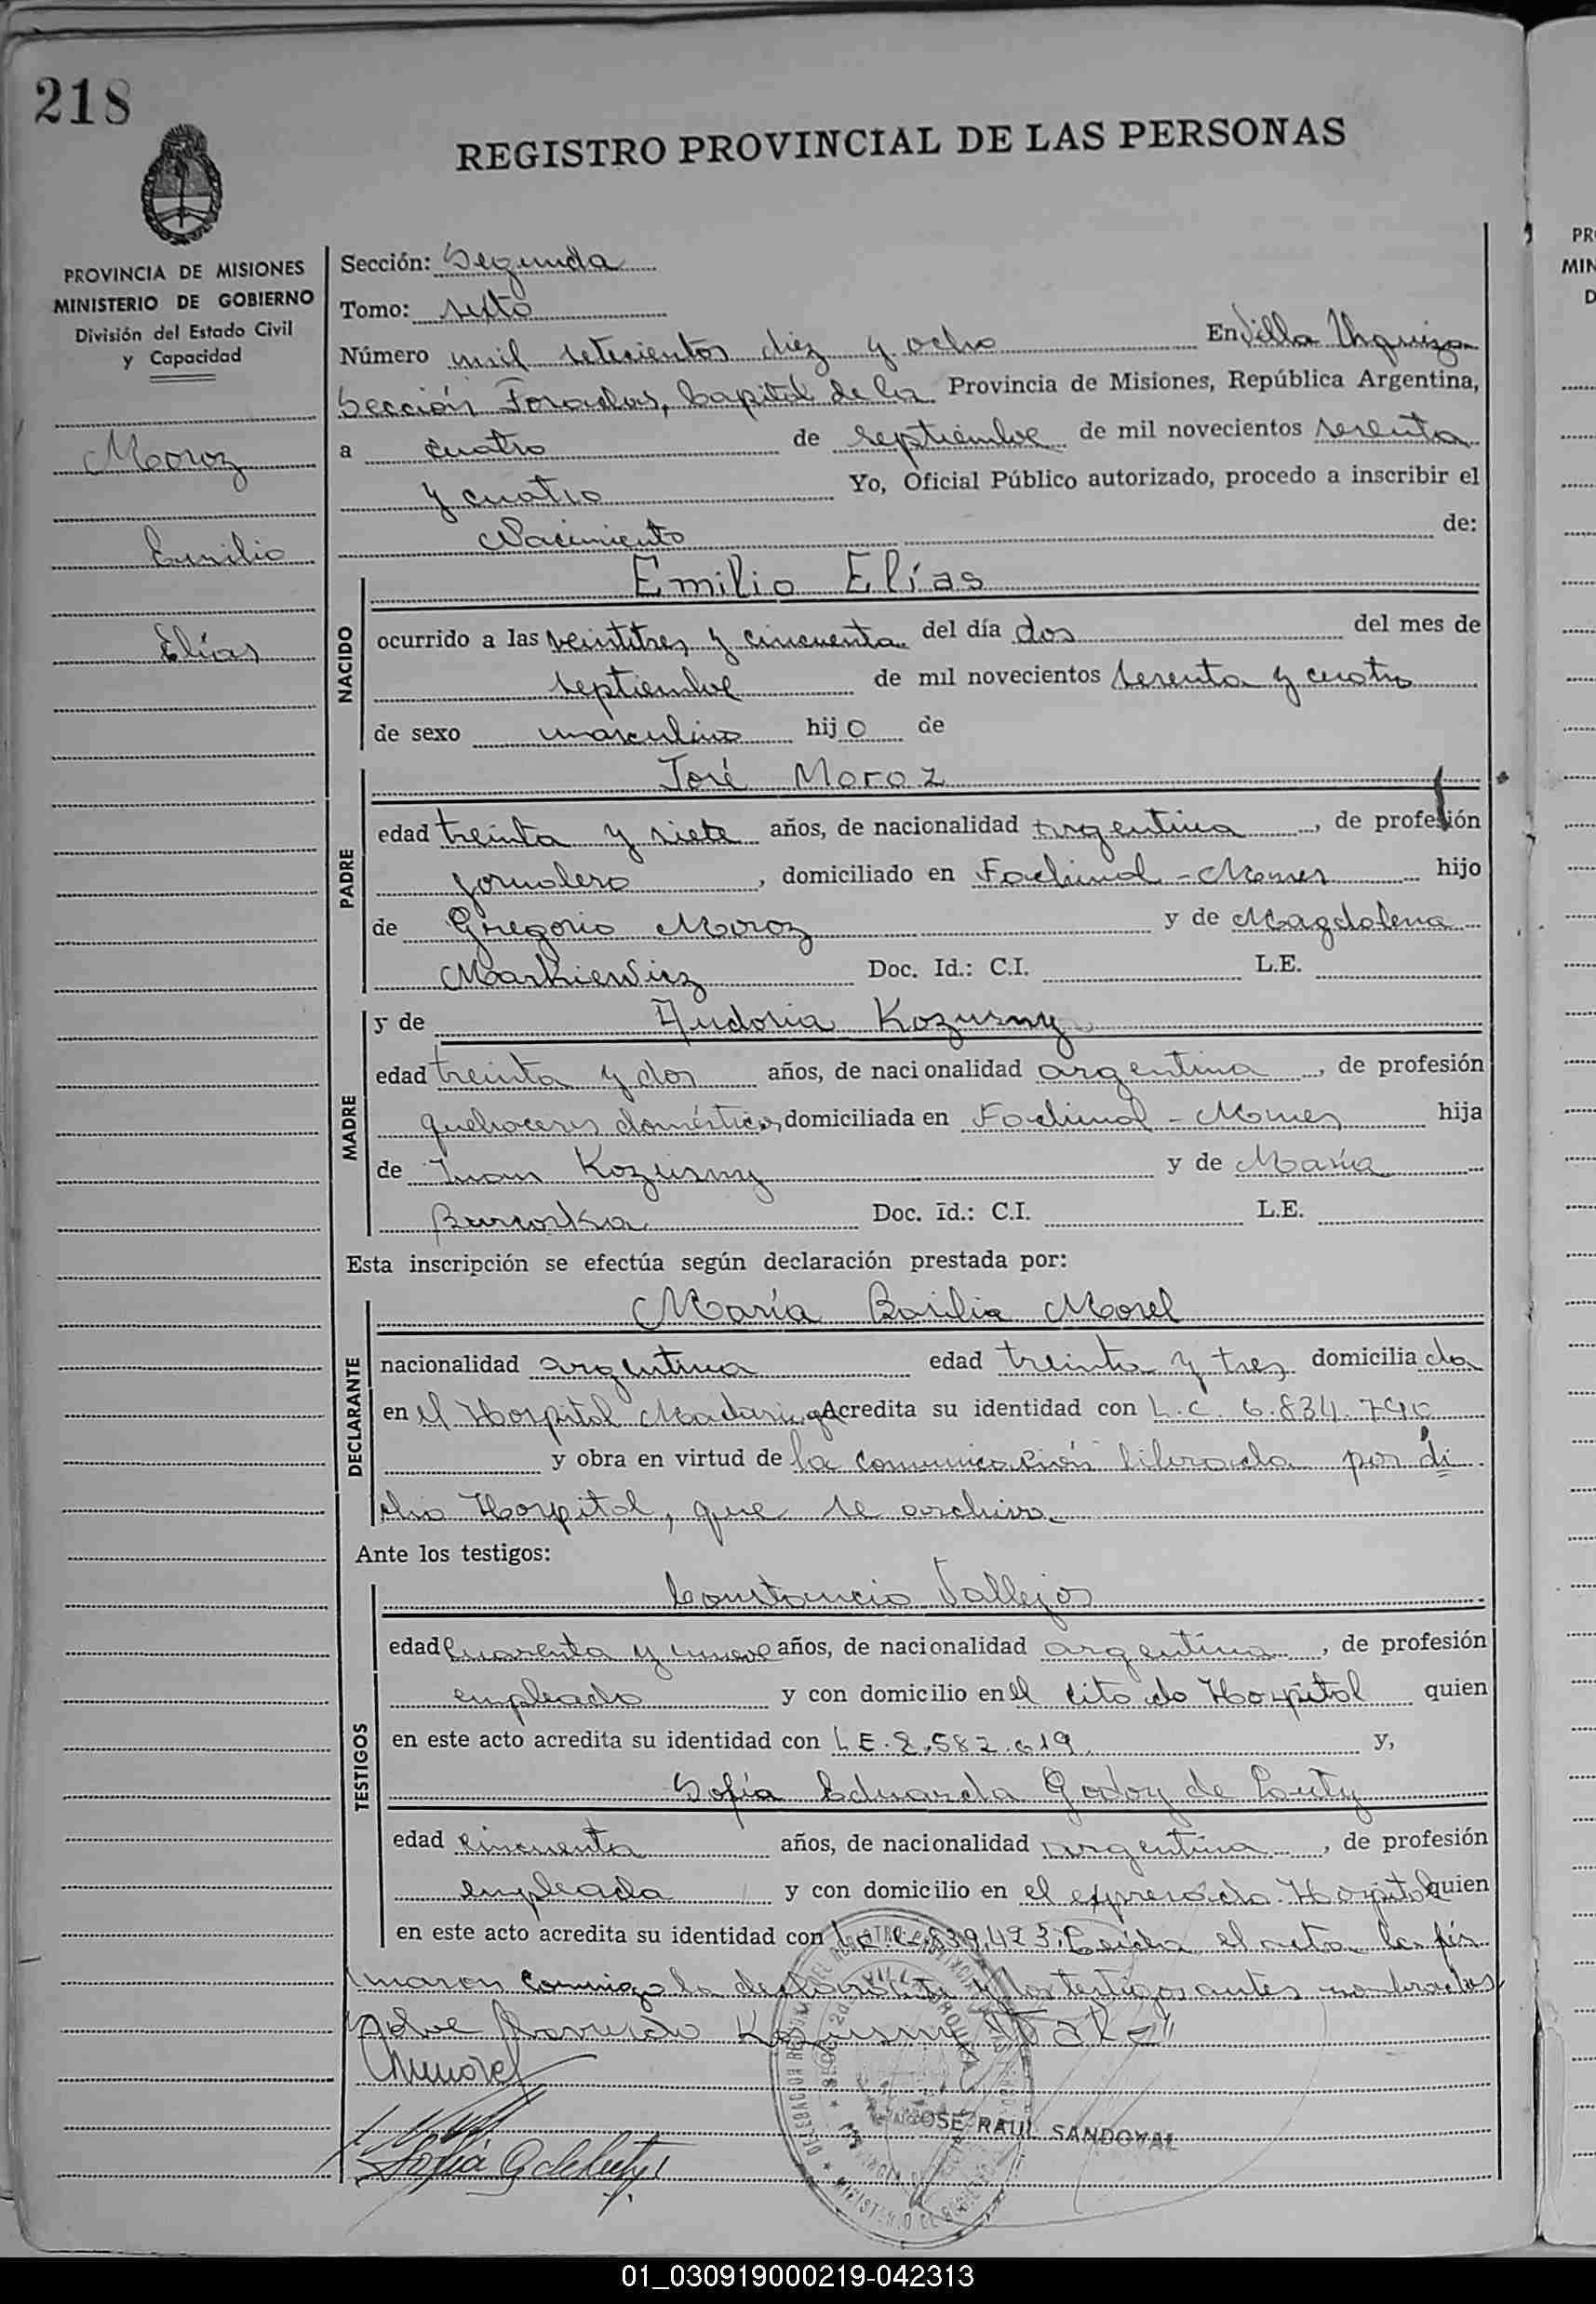 218
REGISTRO PROVINCIAL DE LAS PERSONAS
PROVINCIA DE MISIONES
MINISTERIO DE GOBIERNO
División del Estado Civil
y Capacidad
Moroz
Emilio
Elías
Sección: Segunda
Tomo: sexto
Número mil setecientos diez y ocho En Villa Urquiza
Sección Posadas, Capital de la Provincia de Misiones, República Argentina,
a cuatro de septiembre de mil novecientos sesenta
y cuatro Yo, Oficial Público autorizado, procedo a inscribir el
Nacimiento de:
NACIDO
Emilio Elías
ocurrido a las veintitres y cincuenta del día dos del mes de
septiembre de mil novecientos sesenta y cuatro
de sexo masculino hijo de
PADRE
José Moroz
edad treinta y siete años, de nacionalidad argentina, de profesión
jornalero, domiciliado en Fachinal - Mnes hijo
de Gregorio Moroz y de Magdalena
Markiewicz Doc. Id.: C.I. L.E.
MADRE
y de Audoria Kozusny
edad treinta y dos años, de nacionalidad argentina, de profesión
quehaceres domésticos, domiciliada en Fachinal - Mnes hija
de Juan Kozusny y de María
Doc. Id.: C.I. L.E.
Esta inscripción se efectúa según declaración prestada por:
DECLARANTE
María Basilia Morel
nacionalidad argentina edad treinta y tres domiciliada
en el Hospital Madariaga Acredita su identidad con L.C. 6.834.790
y obra en virtud de la comunicación librada por di
cho Hospital, que se archiva.
Ante los testigos:
TESTIGOS
Constancio Vallejos
edad cuarenta y nueve años, de nacionalidad argentina, de profesión
empleado y con domicilio en el citado Hospital quien
en este acto acredita su identidad con L E. 2.582.619 y,
Sofía Eduarda Godoy de Luty
edad cincuenta años, de nacionalidad argentina, de profesión
empleada y con domicilio en el expresado Hospital quien
en este acto acredita su identidad con Leída el acta la fir
maron conmigo la declarante y los testigos antes nombrados
Kozusny
JOSE RAUL SANDOVAL
01_030919000219-042313